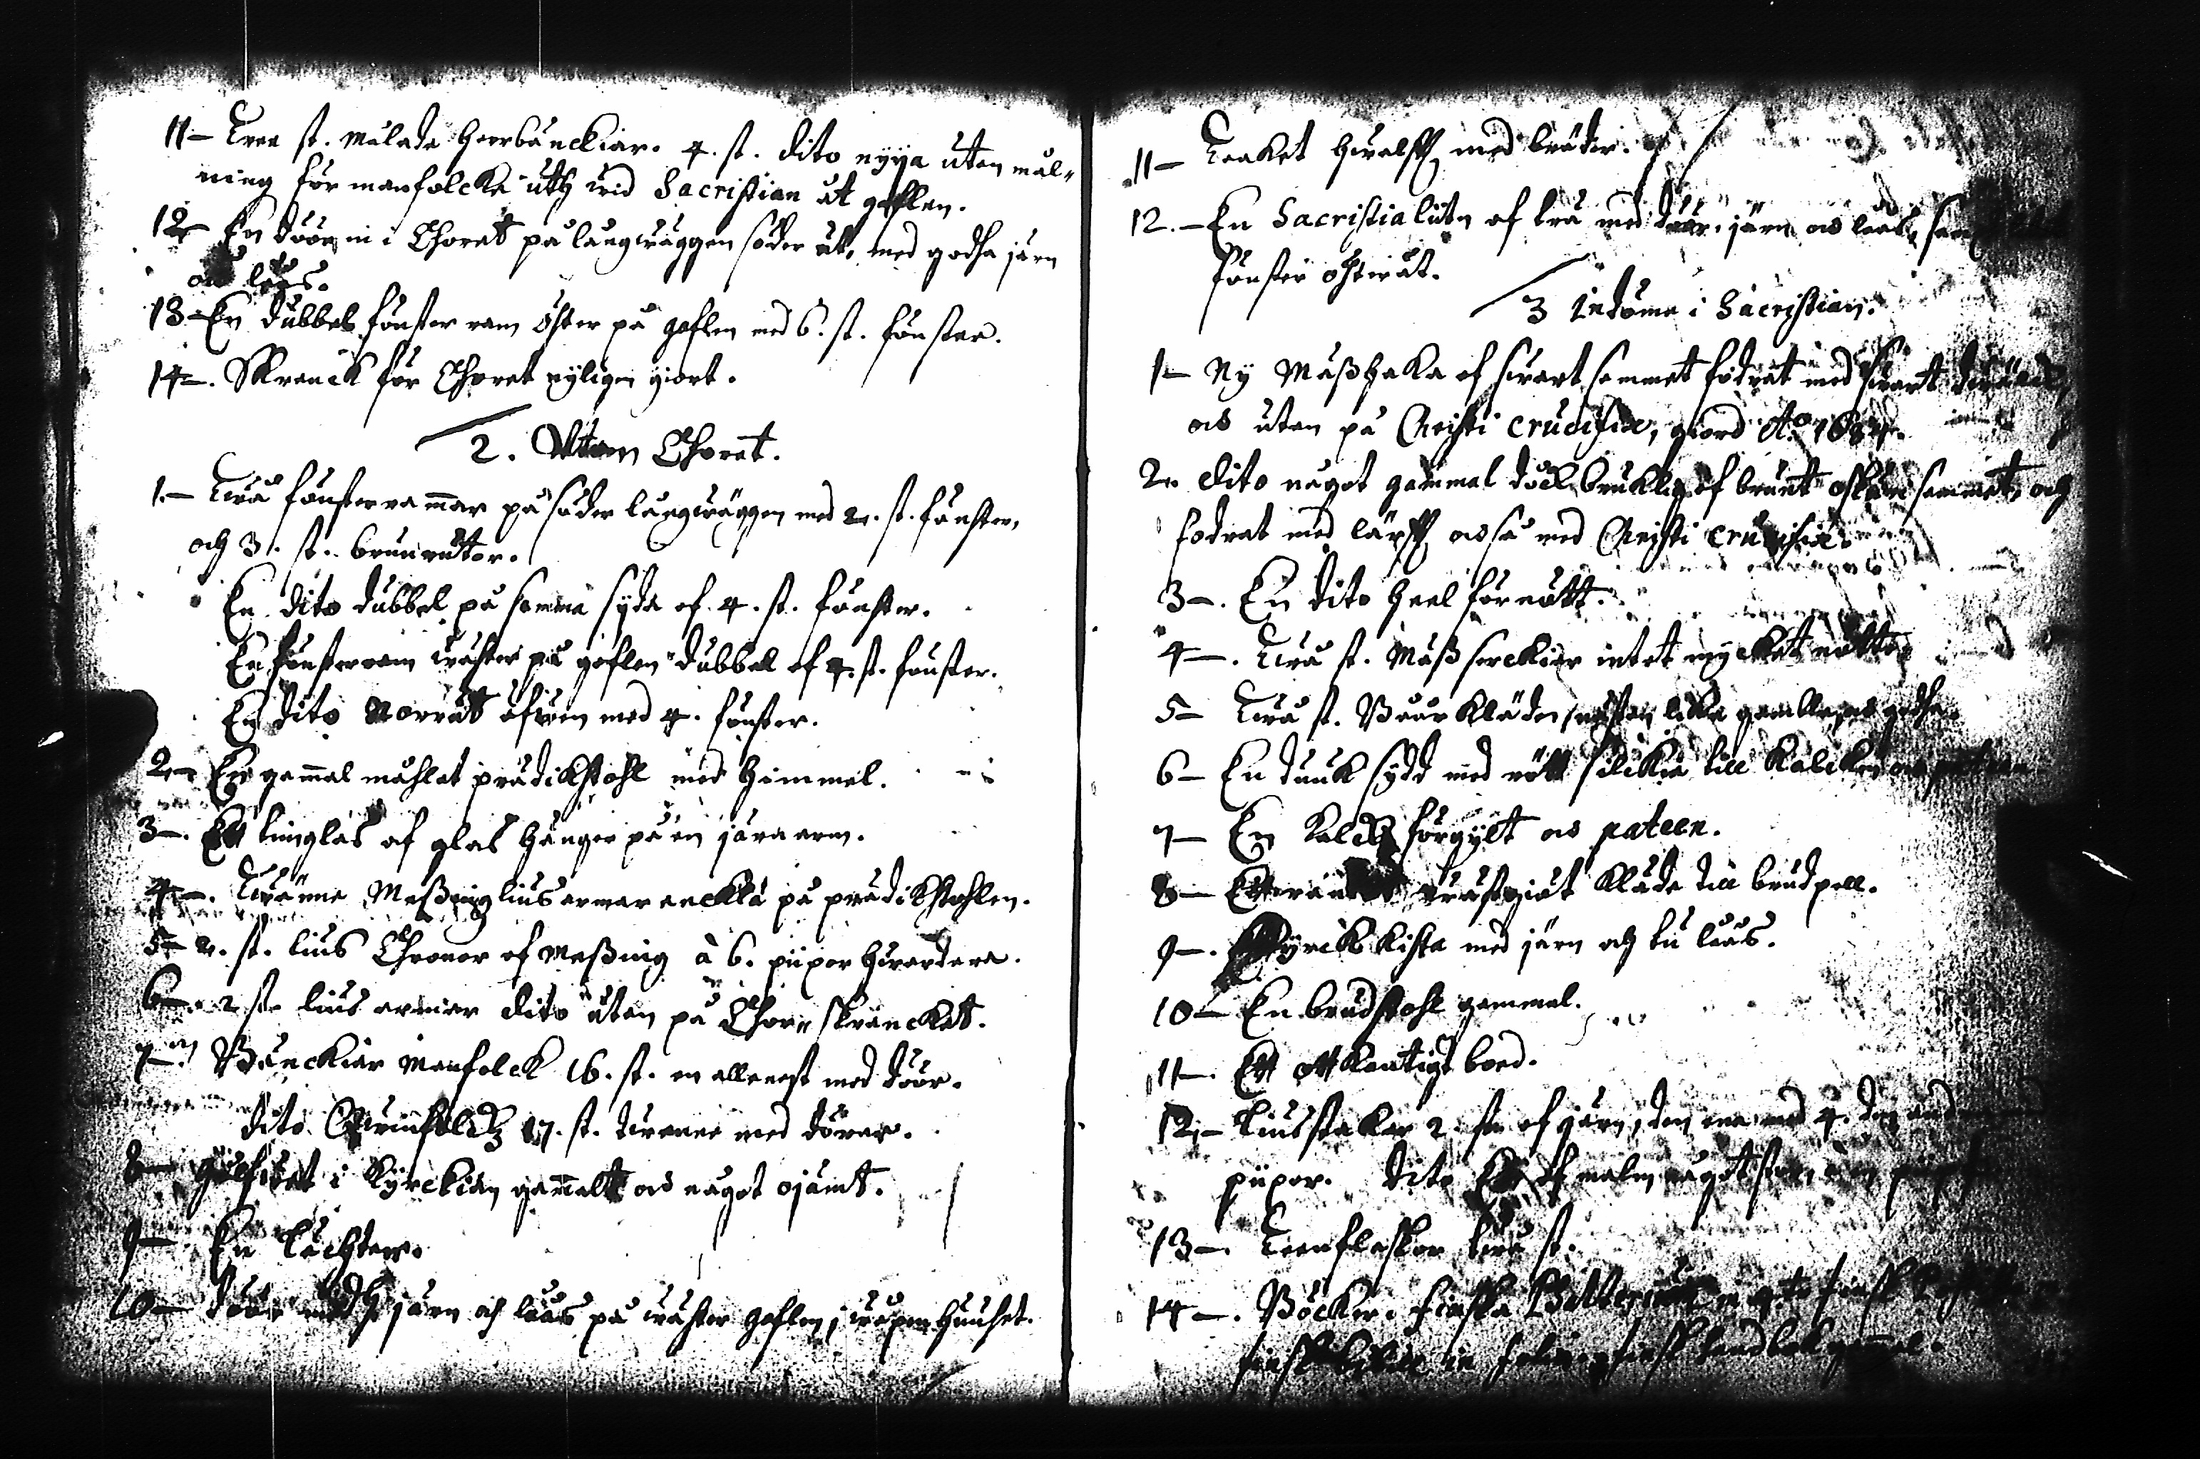 11- Tree st. målade Heerbänckiar. 4. st. dito nyya uten mål-
ning för manfolcke uth wid Sacristian åt gaflen.
12- En döör in i Choret på langwäggen söder åt, med godha järn
och låås.
13- En dubbel fönster ram öster på gaflen med 6. st. fönster.
14-. Skranck för Choret nyligen giort.
2. Utom Choret.
1.- Twå fönster rammar på söder långwäggen med 2. st. fönster,
och 3. st. brunrutor.
En dito dubbel på samma syda af 4. st. fönster.
En fönster ram wäster på gaflen dubbel af 4. st. fönster.
En dito Norråt äfwen med 4. fönster.
2- En gammal måhlat prädikstohl med Himmel.
3-. Ett timglas af glas hänger på en järn arm.
4-. Twänne Meßing lius armar enckla på prädikstohlen.
5- 2. st. lius Chronor af Meßing à 6. piipor hwardera.
6-. 2 st. lius armar dito uten på Chor skrancket.
7-. Bänckiar Manfolck 16. st. en allenest med döör.
dito Qwinfolck 17. st. twenne med dörar.
8- Gålfwet i Kyrckian gammalt och något ojämt.
9- En Lächtare.
10- Döör medh järn och låås på wäster gaflen, i wapen huuset.
11- Taaket Hwalfft med bräder.
12.- En Sacristia liten af trä med döör, järn och låås,
fönster österåt.
3 Indöme i Sacristian.
1- Ny Mäßhaka af swart sammet fodrat med swart
och uten på Christi crucifix, giord Ao 1684.
2. dito något gammal doch bruklig af brunt sammet, och
fodrat med lärfft och så med Christi crucifix.
3-. En dito heel förnött.
4-. Twå st. Mäß serckiar intet mycket nötte.
5- Twå st. Båår kläden, nästan lika gamble, och godhe.
6- En duuk sydd med rött silckie till Kalcken och
7- En Kalck förgylt och pateen.
8- Ett kläde till brudpell.
9-. Kyrck kista med järn och tu låås.
10- En brudstohl gammal.
11-. Ett ottkantigt bord.
12- Liusstakar 2. st. af järn, den ena med 4. den
piipor. dito En af malm något
13-. Teenflaskor twå st.
14-. Böcker. finska
finsk in folio, finsk handbok gammal.